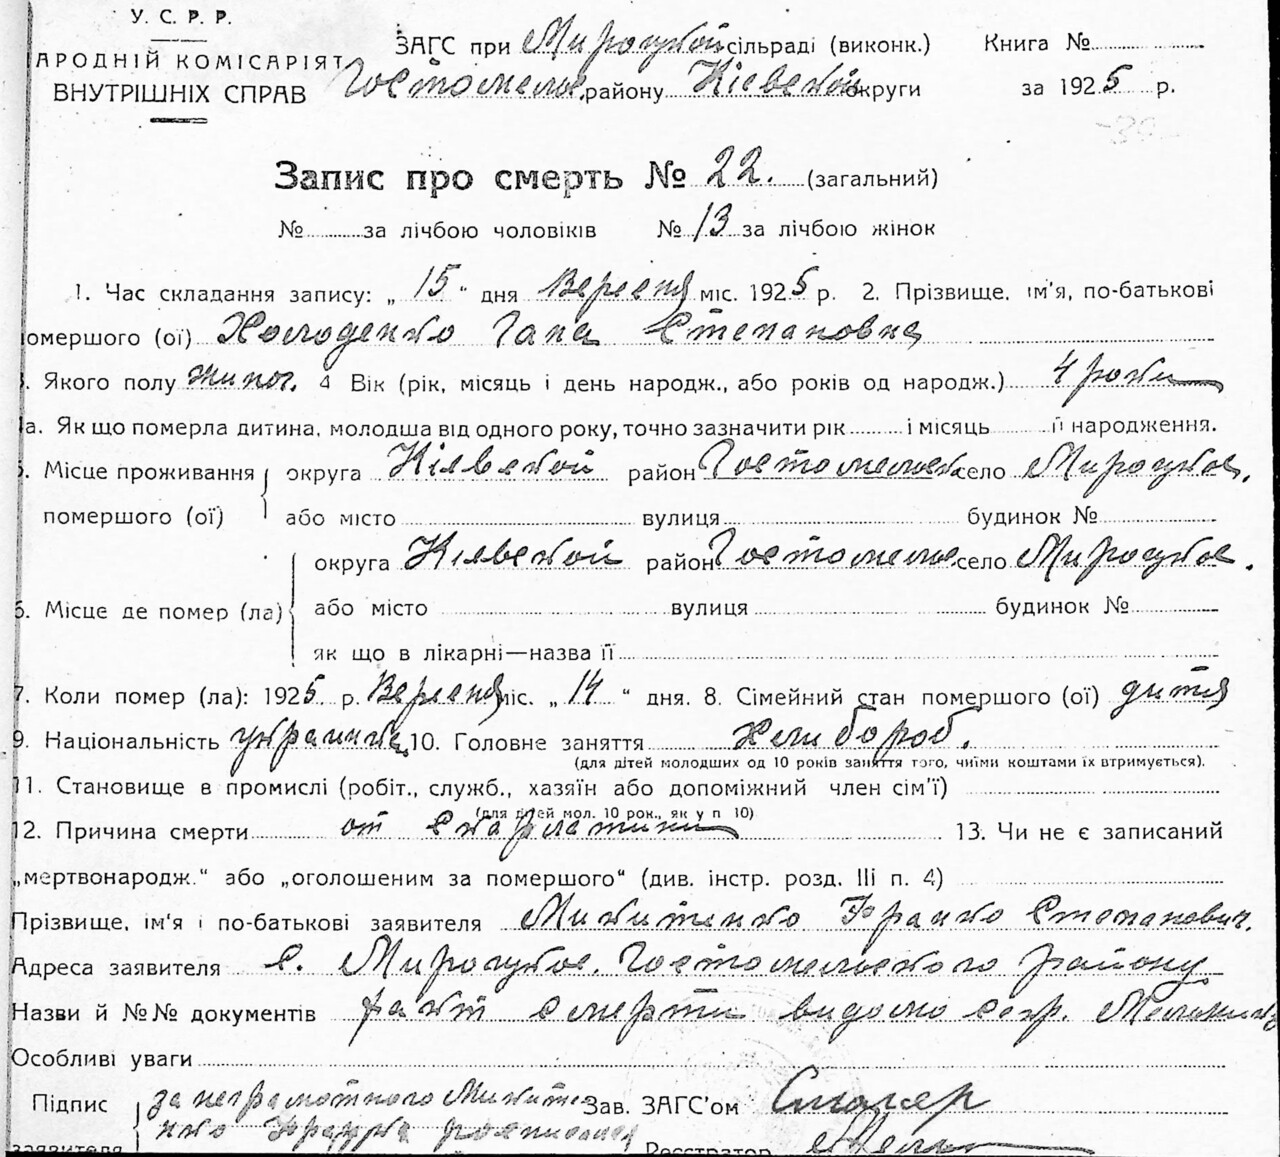 У. С. Р. Р.
АРОДНІЙ КОМІСАРІЯТ
ВНУТРІШНІХ СПРАВ
ЗАГС при Мироцкой сільраді (виконк.) Книга №
Гостомельс. району Кіевской округи за 1925 р.
Запис про смерть № 22. (загальний)
№ за лічбою чоловіків № 13 за лічбою жінок
1. Час складання запису: „15“ дня Вересня міс. 1925 р. 2. Прізвище, ім'я, по-батькові
омершого (ої) Холоденко Гана Степановна
Якого полу 4 Вік (рік, місяць і день народж., або років од народж.) 4 роки
а. Як що померла дитина, молодша від одного року, точно зазначити рік і місяць її народження.
5. Місце проживання округа Кіявской район село Мироцкое.
помершого (ої) або місто вулиця будинок №
округа Кіявской район село Мироцкое.
6. Місце де помер (ла) або місто вулиця будинок №
як що в лікарні—назва її
7. Коли помер (ла): 1925 р. Вересня міс. „14“ дня. 8. Сімейний стан помершого (ої) дитя
9. Національність украинка 10. Головне заняття Хлибороб.
(для дітей молодших од 10 років заняття того, чиїми коштами їх втримується).
11. Становище в промислі (робіт., служб., хазяїн або допоміжний член сім'ї)
(для дітей мол. 10 рок., як у п 10)
12. Причина смерти от скарлатини 13. Чи не є записаний
„мертвонародж.“ або „оголошеним за помершого“ (див. інстр. розд. III п. 4)
Прізвище, ім'я і по-батькові заявителя Микитенко Франко Степанович.
Адреса заявителя с. Мироцкое, Гостомельского району
Назви й №№ документів факт смерти видомо секр.
Особливі уваги
Підпис за неграмотного Миките- Зав. ЗАГС'ом
заявителя нко Франка Реєстратор